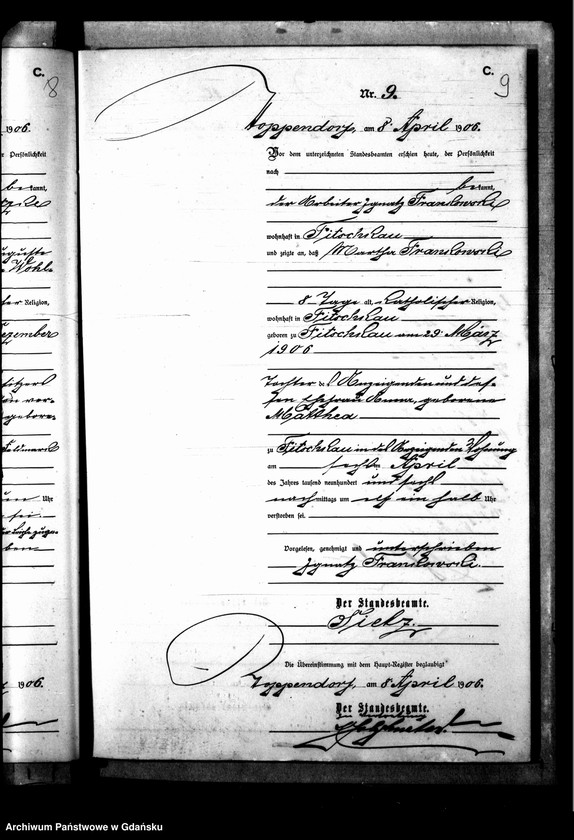 C.
8
1906.
r Persönlichkeit
be kannt,
Religion,
Uhr
1906.
C.
9
Nr. 9.
Hoppendorf, am 8 April 1906.
Vor dem unterzeichneten Standesbeamten erschien heute, der Persönlichkeit
nach
be kannt,
der Arbeiter Ignatz Franskowski
wohnhaft in Fitschkau
und zeigte an, daß Martha Franskowski
8 Tage alt, katholischer Religion,
wohnhaft in Fitschkau
geboren zu Fitschkau am 29 März
1906
Tochter des Anzeigenden und des-
sen Ehefrau Anna, geborene
Matthea
zu Fitschkau in des Anzeigenden Wohnung
am sechsten April
des Jahres tausend neunhundert und sechs
nachmittags um elf ein halb Uhr
verstorben sei.
Vorgelesen, genehmigt und unterschrieben
Ignatz Franskowski.
Der Standesbeamte.
Die Übereinstimmung mit dem Haupt-Register beglaubigt
Hoppendorf, am 8 April 1906.
Der Standesbeamte.
In Vertretung
Archiwum Państwowe w Gdańsku